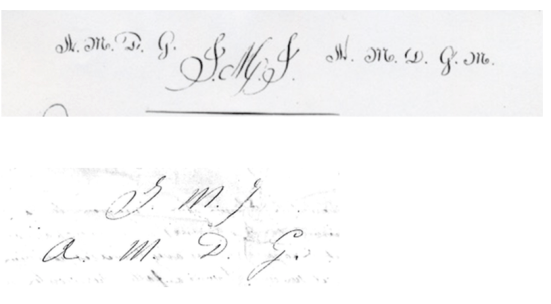 A. M. D. G. J.M.J. A. M. D. G. M.
J. M. J
A. M. D. G.